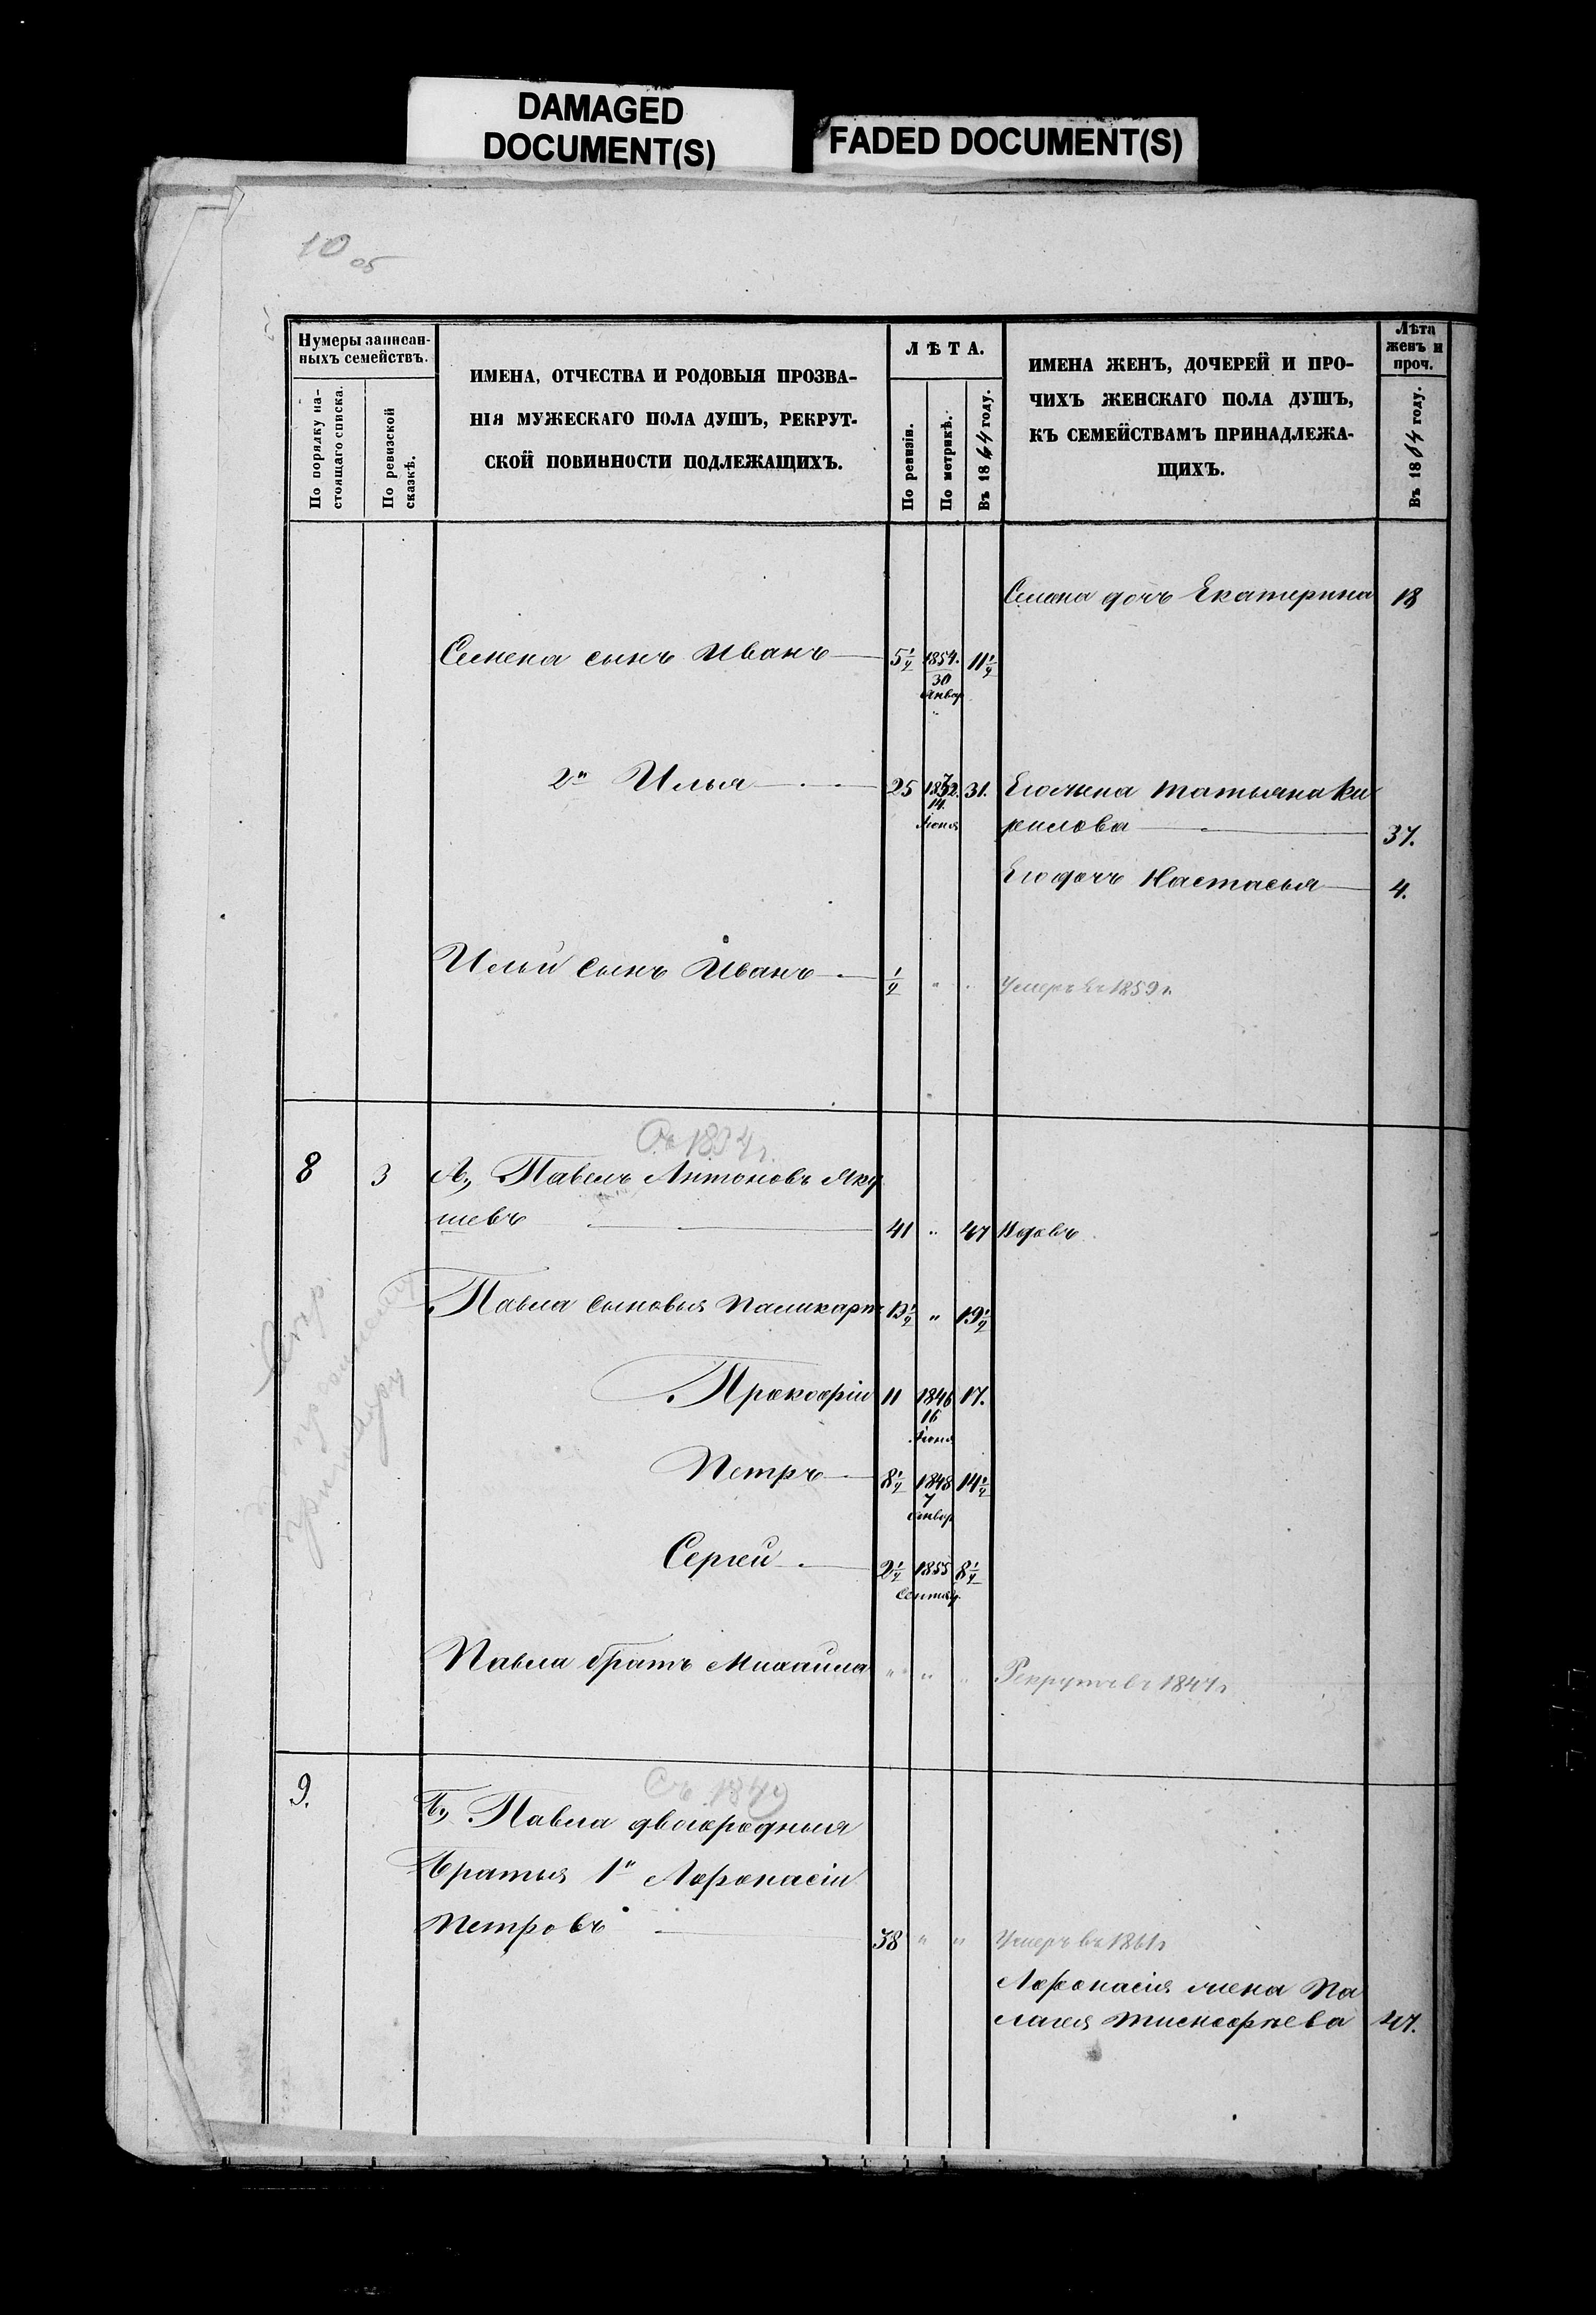 DAMAGED
DOCUMENT(S)
FADED DOCUMENT(S)
10 об
Нумеры записан-
ныхъ семействъ.
По порядку на-
стоящаго списка.
По ревизской
сказкѣ.
ИМЕНА, ОТЧЕСТВА И РОДОВЫЯ ПРОЗВА-
НІЯ МУЖЕСКАГО ПОЛА ДУШЪ, РЕКРУТ-
СКОЙ ПОВИННОСТИ ПОДЛЕЖАЩИХЪ.
ЛѢТА.
По ревизіи.
По метрикѣ.
Въ 1864 году.
ИМЕНА ЖЕНЪ, ДОЧЕРЕЙ И ПРО-
ЧИХЪ ЖЕНСКАГО ПОЛА ДУШЪ,
КЪ СЕМЕЙСТВАМЪ ПРИНАДЛЕЖА-
ЩИХЪ.
Лѣта
женъ и
проч.
Въ 1864 году.
Семена дочь Екатерина 18
Семена сынъ Иванъ 5½ 1854. 11½
30
Январ
2й Илья 25 31. Его жена Татьяна Ки
14.
Іюня
рилова 37.
Его дочь Настасья 4.
Ильи сынъ Иванъ ½ " " Умеръ въ 1859 г.
Съ 1834 г.
8 3 А, Павелъ Антоновъ Яку
шевъ 41 " 47 Вдовъ
Павла сыновья Паликарпъ 13½ " 19½
Прокофій 11 1846 17.
16
Іюня
Петръ 8½ 1848 14½
7
Январ
Сергей 2½ 1855 8½
Сентяб.
Павла братъ Михайла " " " Рекрутъ въ 1847 г
Съ 1849
9. Б, Павла двоюродныя
братья 1й Афонасій
Петровъ 38 " " Умеръ въ 1861 г
Афонасія жена Па
лагея Тимофеева 47.